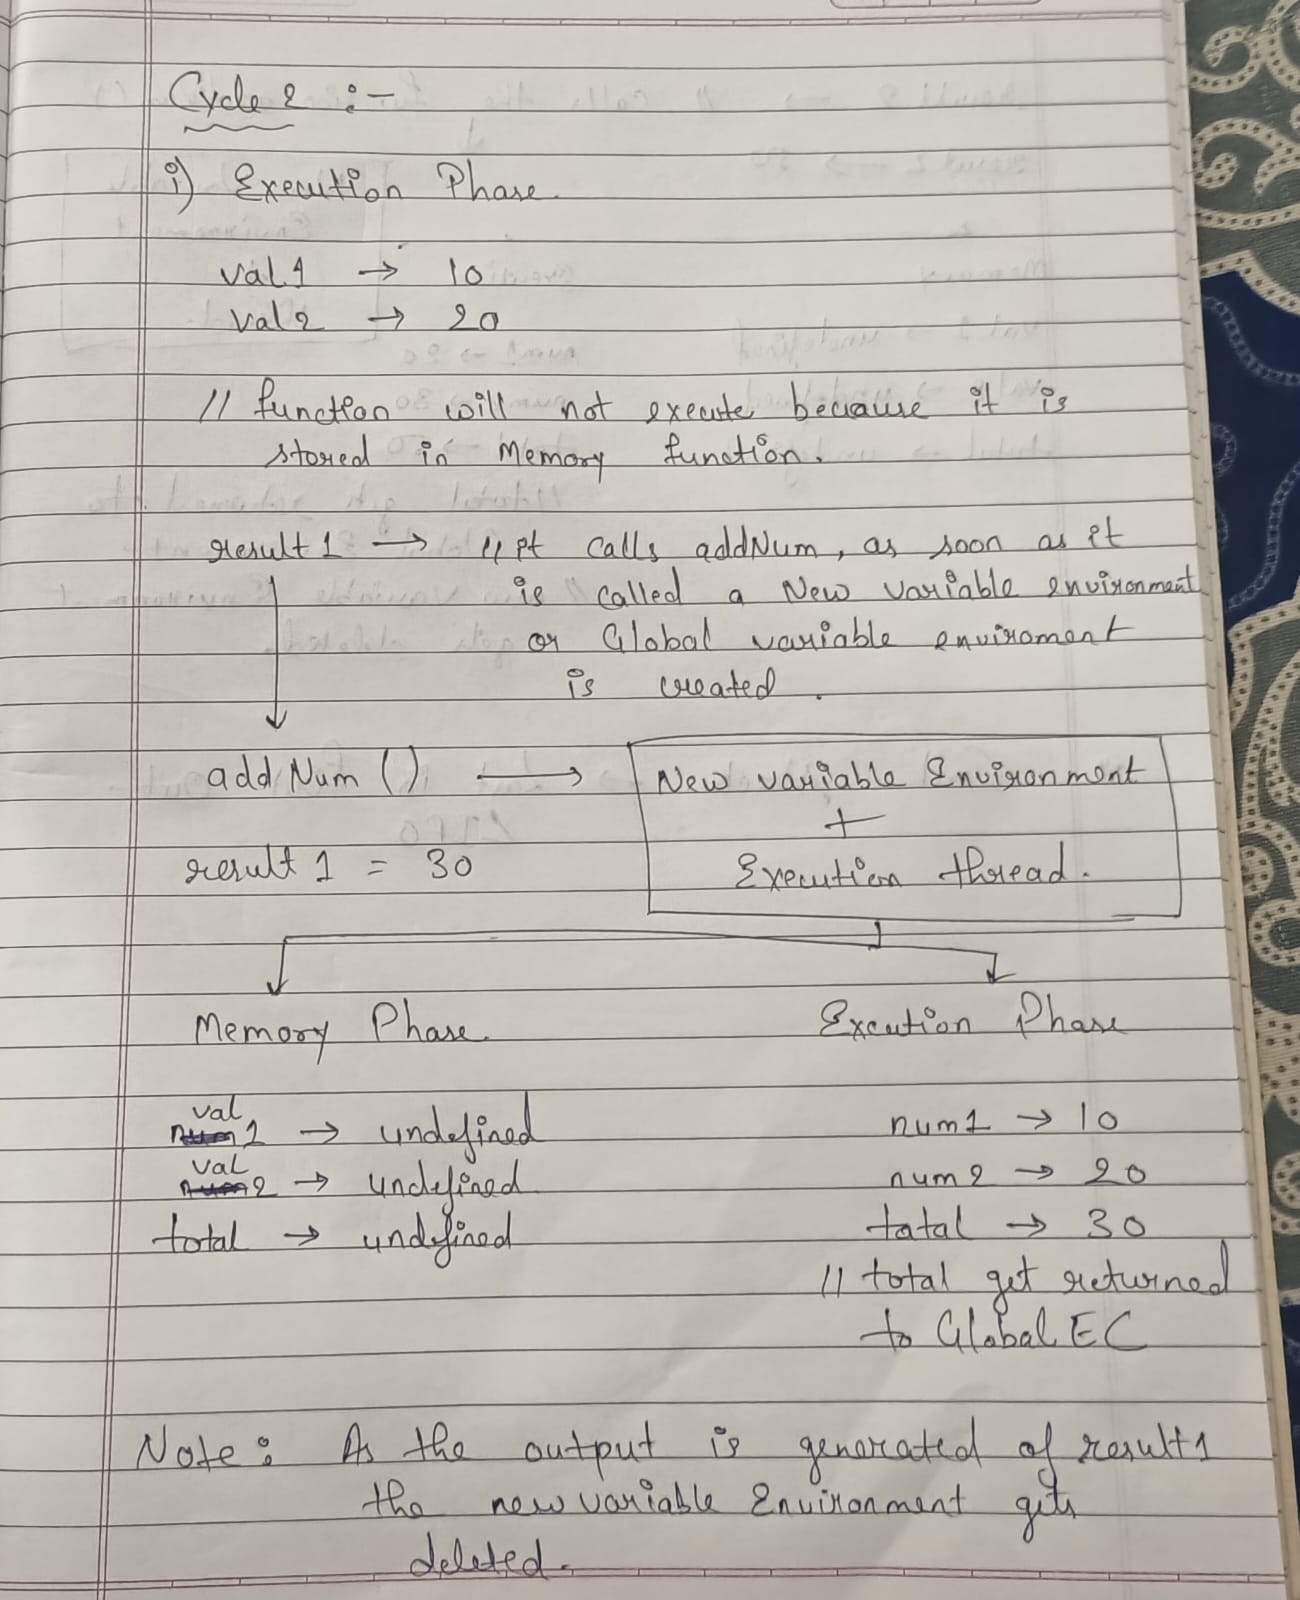 Cycle 2 :-
i) Execution Phase.
val1 → 10
val2 → 20
// function will not execute because it is
stored in Memory function.
result 1 → // it calls addNum, as soon as it
is called a New variable environment
or Global variable enviroment
is created.
addNum () → New variable Environment
+
result 1 = 30 Execution thread.
Memory Phase. Excution Phase
val1 → undefined num1 → 10
val2 → undefined num2 → 20
total → undefined tatal → 30
// total get returned
to Global EC
Note: As the output is generated of result1
the new variable Environment gets
deleted.